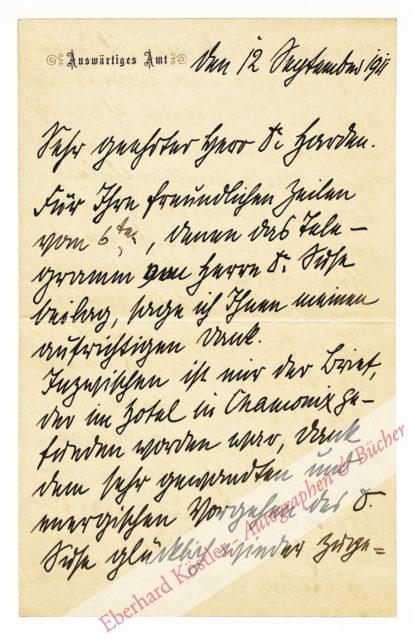 Auswärtiges Amt
den 12 September 1911
Sehr geehrter Herr Dr Harden.
Für Ihre freundlichen Zeilen
vom 6ten, denen das Tele-
gramm Herrn Dr Suse
beilag, sage ich Ihnen meinen
aufrichtigen Dank.
Inzwischen ist mir der Brief,
der im Hotel in Chamonix ge-
funden worden war, Dank
dem sehr gewandten und
energischen Vorgehen des Dr
Suse glücklich wieder zuge=
Eberhard Köstler Autographen & Bücher